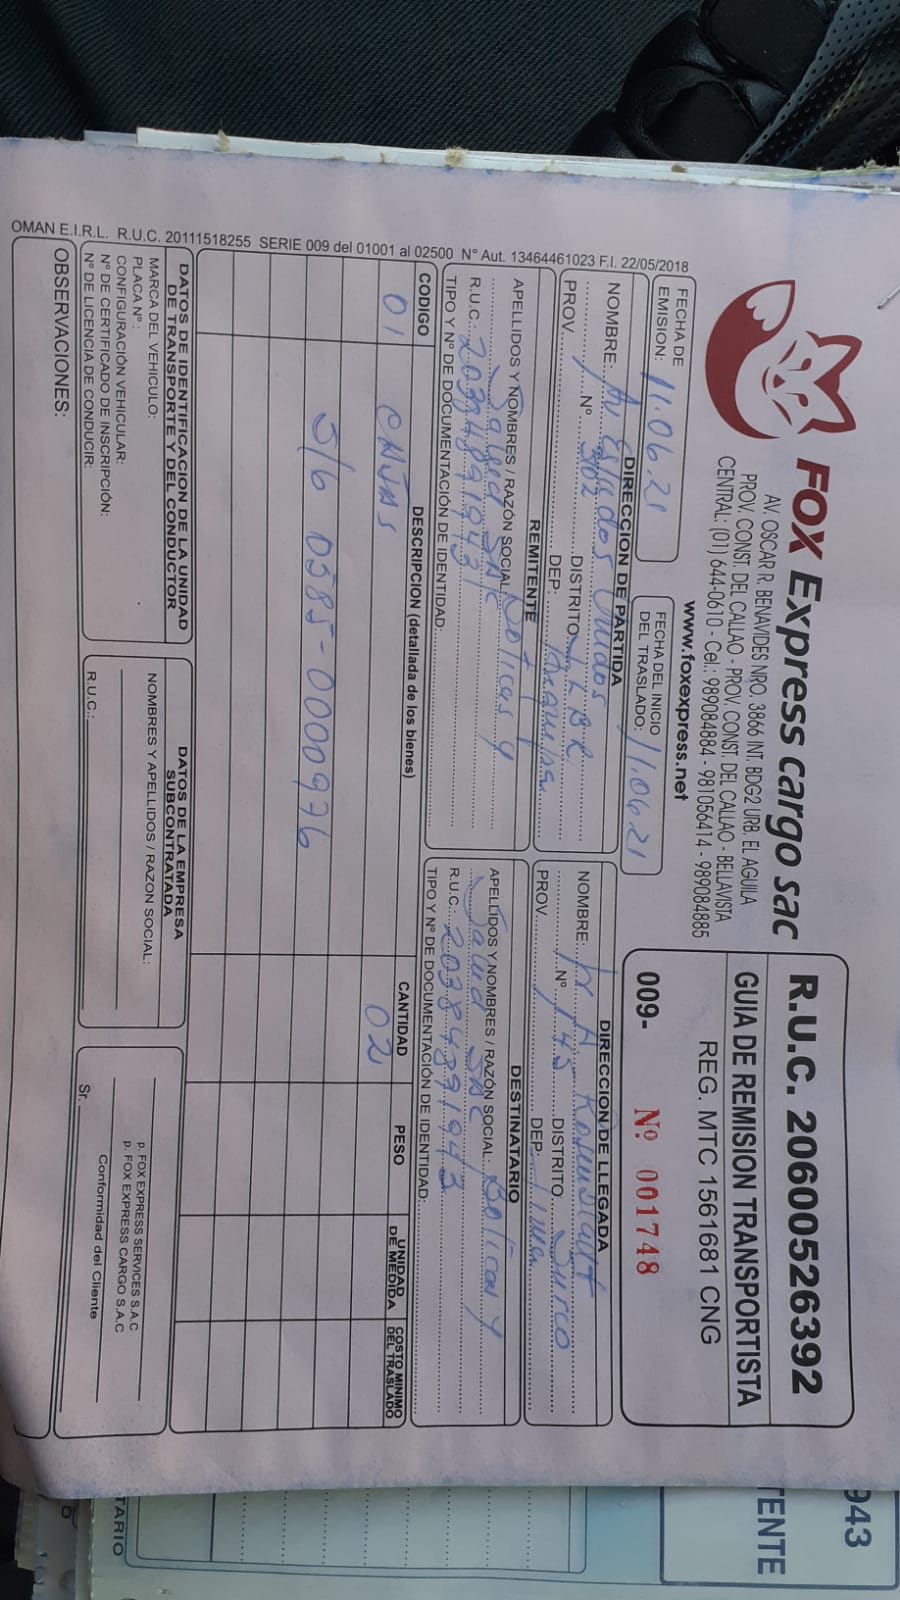 FOX Express cargo sac
AV. OSCAR R. BENAVIDES NRO. 3866 INT. BDG2 URB. EL AGUILA
PROV. CONST. DEL CALLAO - PROV. CONST. DEL CALLAO - BELLAVISTA
CENTRAL: (01) 644-0610 - Cel.: 989084884 - 981056414 - 989084885
www.foxexpress.net
R.U.C. 20600526392
GUIA DE REMISION TRANSPORTISTA
REG. MTC 1561681 CNG
009- Nº 001748
FECHA DE EMISION: 11.06.21
FECHA DEL INICIO DEL TRASLADO: 11.06.21
DIRECCION DE PARTIDA
NOMBRE: Av Estados Unidos
Nº 502 DISTRITO J L B R.
PROV. DEP. Arequipa
DIRECCION DE LLEGADA
NOMBRE:
Nº 145 DISTRITO Surco
PROV. DEP. Lima
REMITENTE
APELLIDOS Y NOMBRES / RAZÓN SOCIAL
Salud SAC
R.U.C.
TIPO Y Nº DE DOCUMENTACIÓN DE IDENTIDAD:
DESTINATARIO
APELLIDOS Y NOMBRES / RAZÓN SOCIAL:
Salud SAC
R.U.C.: 20384891943
TIPO Y Nº DE DOCUMENTACIÓN DE IDENTIDAD:
CODIGO DESCRIPCION (detallada de los bienes) CANTIDAD PESO UNIDAD DE MEDIDA COSTO MINIMO DEL TRASLADO
01 CAJAS 02
S/G 0585-0000976
DATOS DE IDENTIFICACION DE LA UNIDAD DE TRANSPORTE Y DEL CONDUCTOR
MARCA DEL VEHICULO:
PLACA Nº :
CONFIGURACIÓN VEHICULAR:
Nº DE CERTIFICADO DE INSCRIPCIÓN:
Nº DE LICENCIA DE CONDUCIR:
DATOS DE LA EMPRESA SUBCONTRATADA
NOMBRES Y APELLIDOS / RAZON SOCIAL:
R.U.C.:
p. FOX EXPRESS SERVICES S.A.C
p. FOX EXPRESS CARGO S.A.C
Conformidad del Cliente
Sr.
OBSERVACIONES:
OMAN E.I.R.L. R.U.C. 20111518255 SERIE 009 del 01001 al 02500 Nº Aut. 13464461023 F.I. 22/05/2018
943
TENTE
TARIO